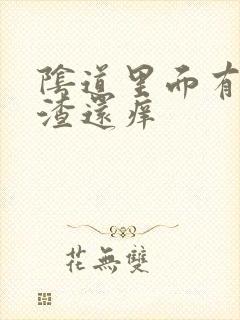 陰道里而有
渣還痒
花無雙